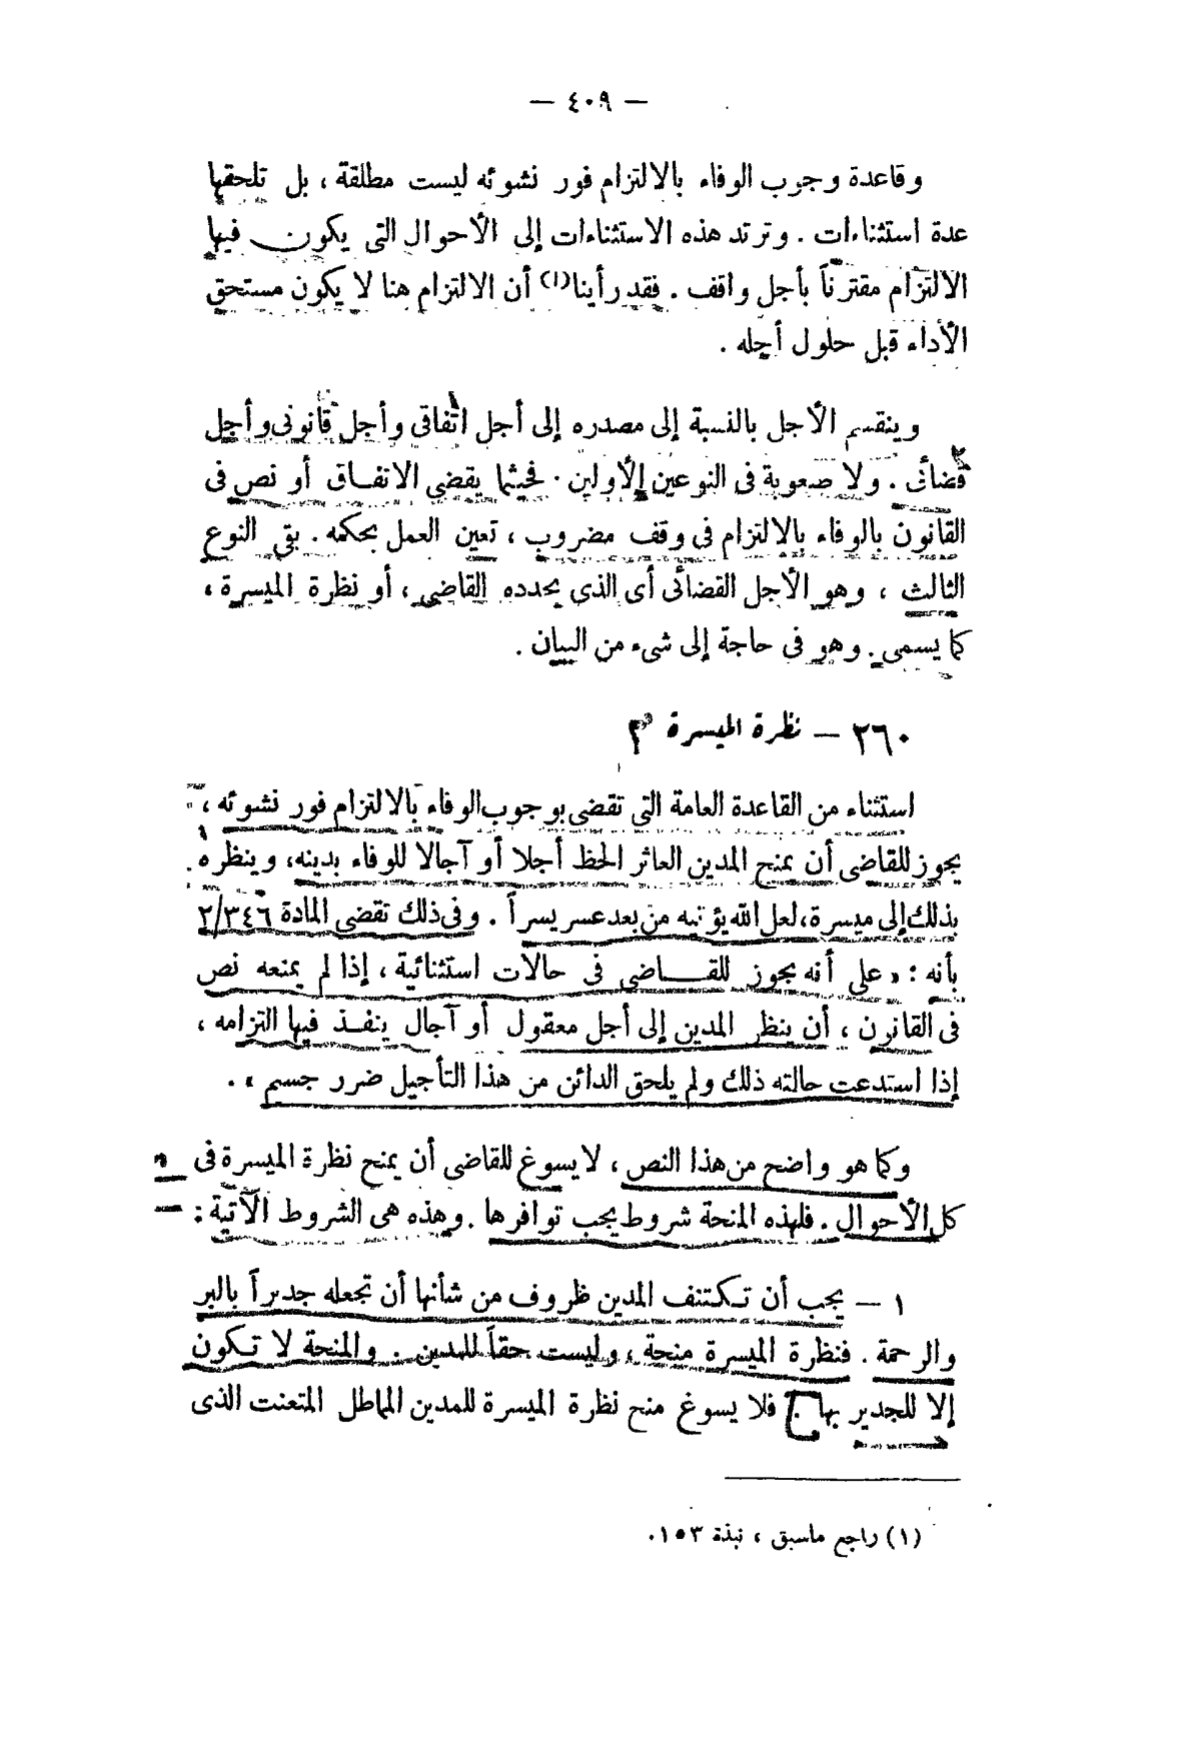 — ٤٠٩ —
وقاعدة وجوب الوفاء بالالتزام فور نشوئه ليست مطلقة ، بل تلحقها
عدة استثناءات . وترتد هذه الاستثناءات إلى الأحوال التى يكون فيها
الالتزام مقترناً بأجل واقف . فقد رأينا(١) أن الالتزام هنا لا يكون مستحق
الأداء قبل حلول أجله .
وينقسم الأجل بالنسبة إلى مصدره إلى أجل اتفاقى وأجل قانونى وأجل
قضائى . ولا صعوبة فى النوعين الأولين . فحيثما يقضى الاتفاق أو نص فى
القانون بالوفاء بالالتزام فى وقف مضروب ، تعين العمل بحكمه . بقى النوع
الثالث ، وهو الأجل القضائى أى الذى يحدده القاضى ، أو نظرة الميسرة ،
كما يسمى . وهو فى حاجة إلى شىء من البيان .
٢٦٠ — نظرة الميسرة
استثناء من القاعدة العامة التى تقضى بوجوب الوفاء بالالتزام فور نشوئه ،
يجوز للقاضى أن يمنح المدين العاثر الحظ أجلا أو آجالا للوفاء بدينه ، وينظره
بذلك إلى ميسرة ، لعل الله يؤتيه من بعد عسر يسراً . وفى ذلك تقضى المادة ٢/٣٤٦
بأنه : « على أنه يجوز للقـــاضى فى حالات استثنائية ، إذا لم يمنعه نص
فى القانون ، أن ينظر المدين إلى أجل معقول أو آجال ينفـذ فيها التزامه ،
إذا استدعت حالته ذلك ولم يلحق الدائن من هذا التأجيل ضرر جسيم » .
وكما هو واضح من هذا النص ، لا يسوغ للقاضى أن يمنح نظرة الميسرة فى
كل الأحوال . فلهذه المنحة شروط يجب توافرها . وهذه هى الشروط الآتية :
١ — يجب أن تـكتنف المدين ظروف من شأنها أن تجعله جديراً بالبر
والرحمة . فنظرة الميسرة منحة ، وليست حقاً للمدين . والمنحة لا تـكون
إلا للجدير بها . فلا يسوغ منح نظرة الميسرة للمدين المماطل المتعنت الذى
(١) راجع ماسبق ، نبذة ١٥٣.